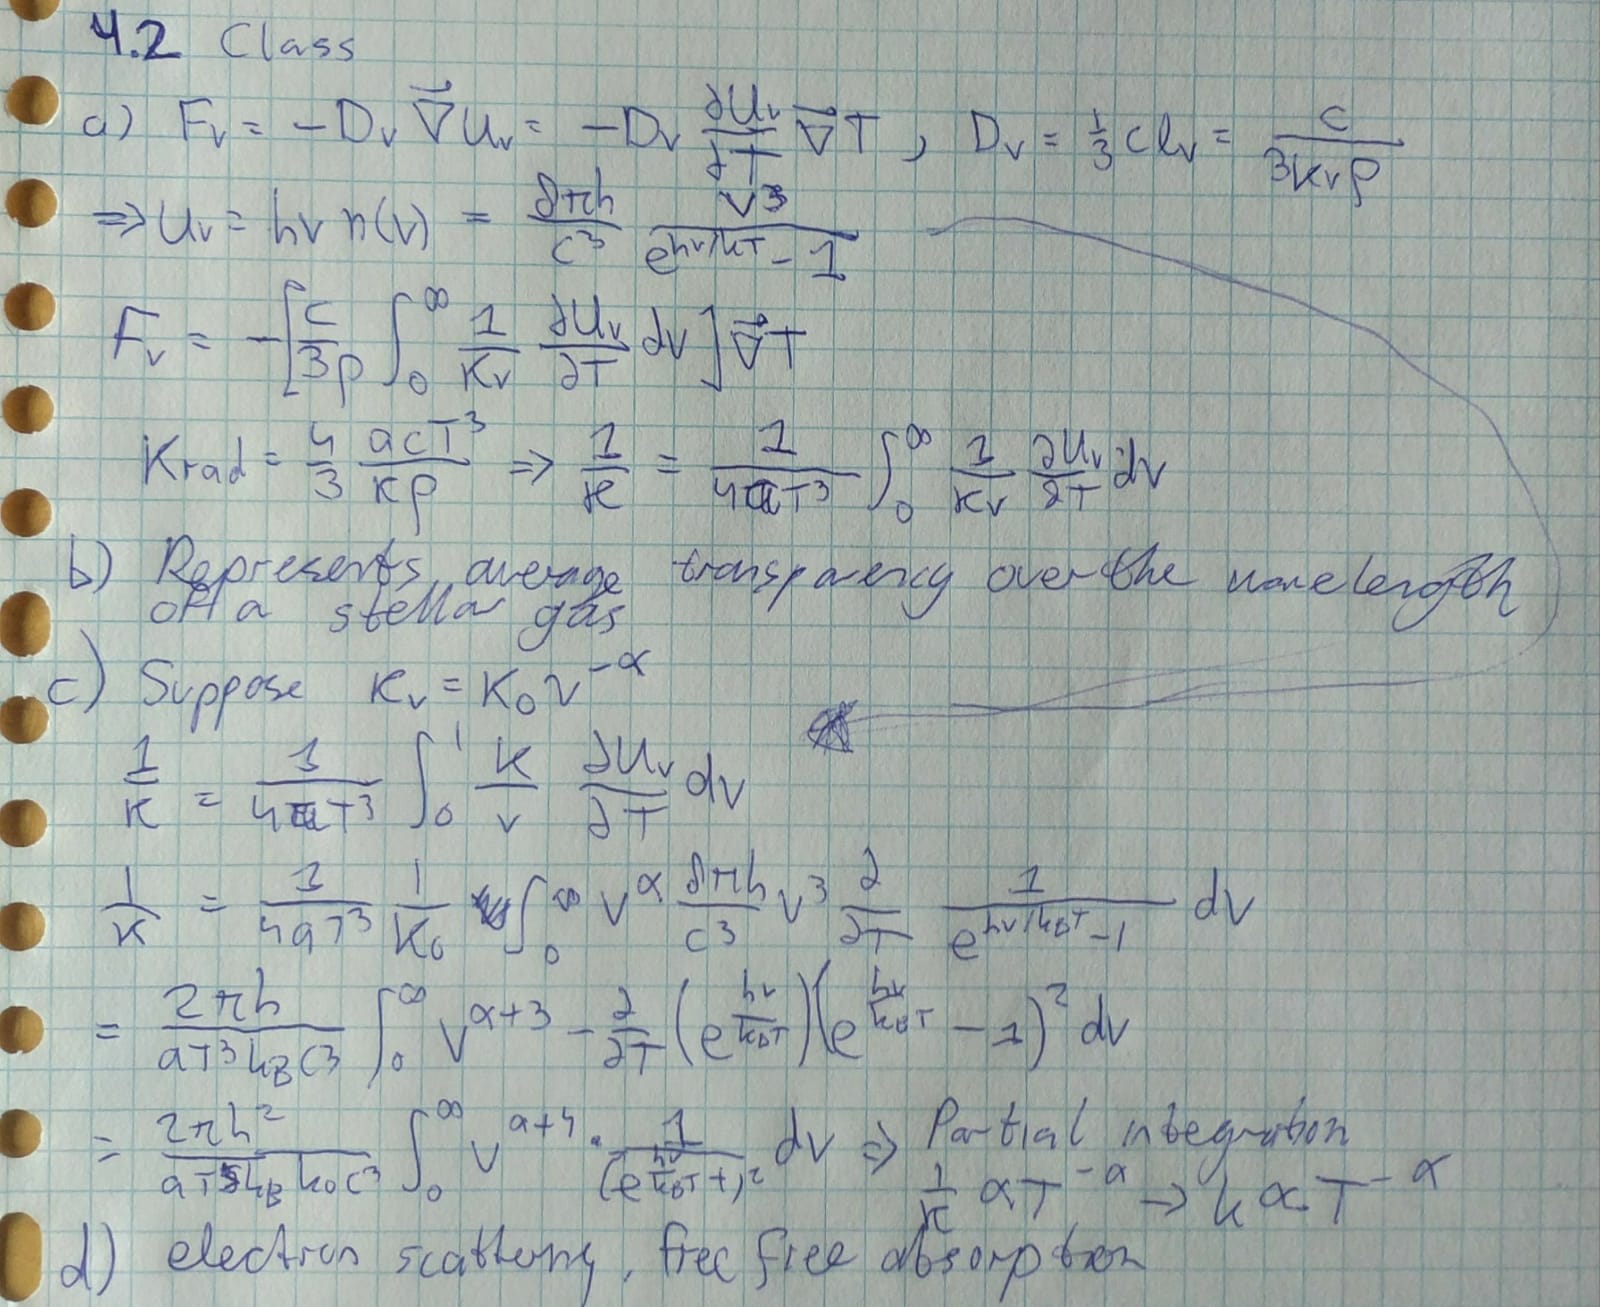 4.2 Class
a) Fν = −Dν ∇⃗Uν = −Dν ∂Uν/∂T ∇⃗T , Dν = 1/3 clν = c/3κνρ
⇒ Uν = hν n(ν) = 8πh/c³ ν³/e^hν/kT − 1
Fν = −[c/3ρ ∫₀^∞ 1/κν ∂Uν/∂T dν] ∇⃗T
Krad = 4/3 acT³/κρ ⇒ 1/κ = 1/4aT³ ∫₀^∞ 1/κν ∂Uν/∂T dν
b) Represents average transparency over the wavelength
of a stellar gas
c) Suppose κν = κ0 ν^−α
1/κ = 1/4aT³ ∫₀^1 κ/ν ∂Uν/∂T dν
1/κ = 1/4aT³ 1/κ0 ∫₀^∞ ν^α 8πh/c³ ν³ ∂/∂T 1/e^hν/kBT −1 dν
= 2πh/aT³kBc³ ∫₀^∞ ν^α+3 − ∂/∂T (e^hν/kBT)(e^hν/kBT − 1)² dν
= 2πh²/aT5kBk0c³ ∫₀^∞ ν^a+4 · 1/(e^hν/kBT+)² dν ⇒ Partial integration
1/κ ∝ T^−α → k ∝ T^−α
d) electron scattering, free free absorption